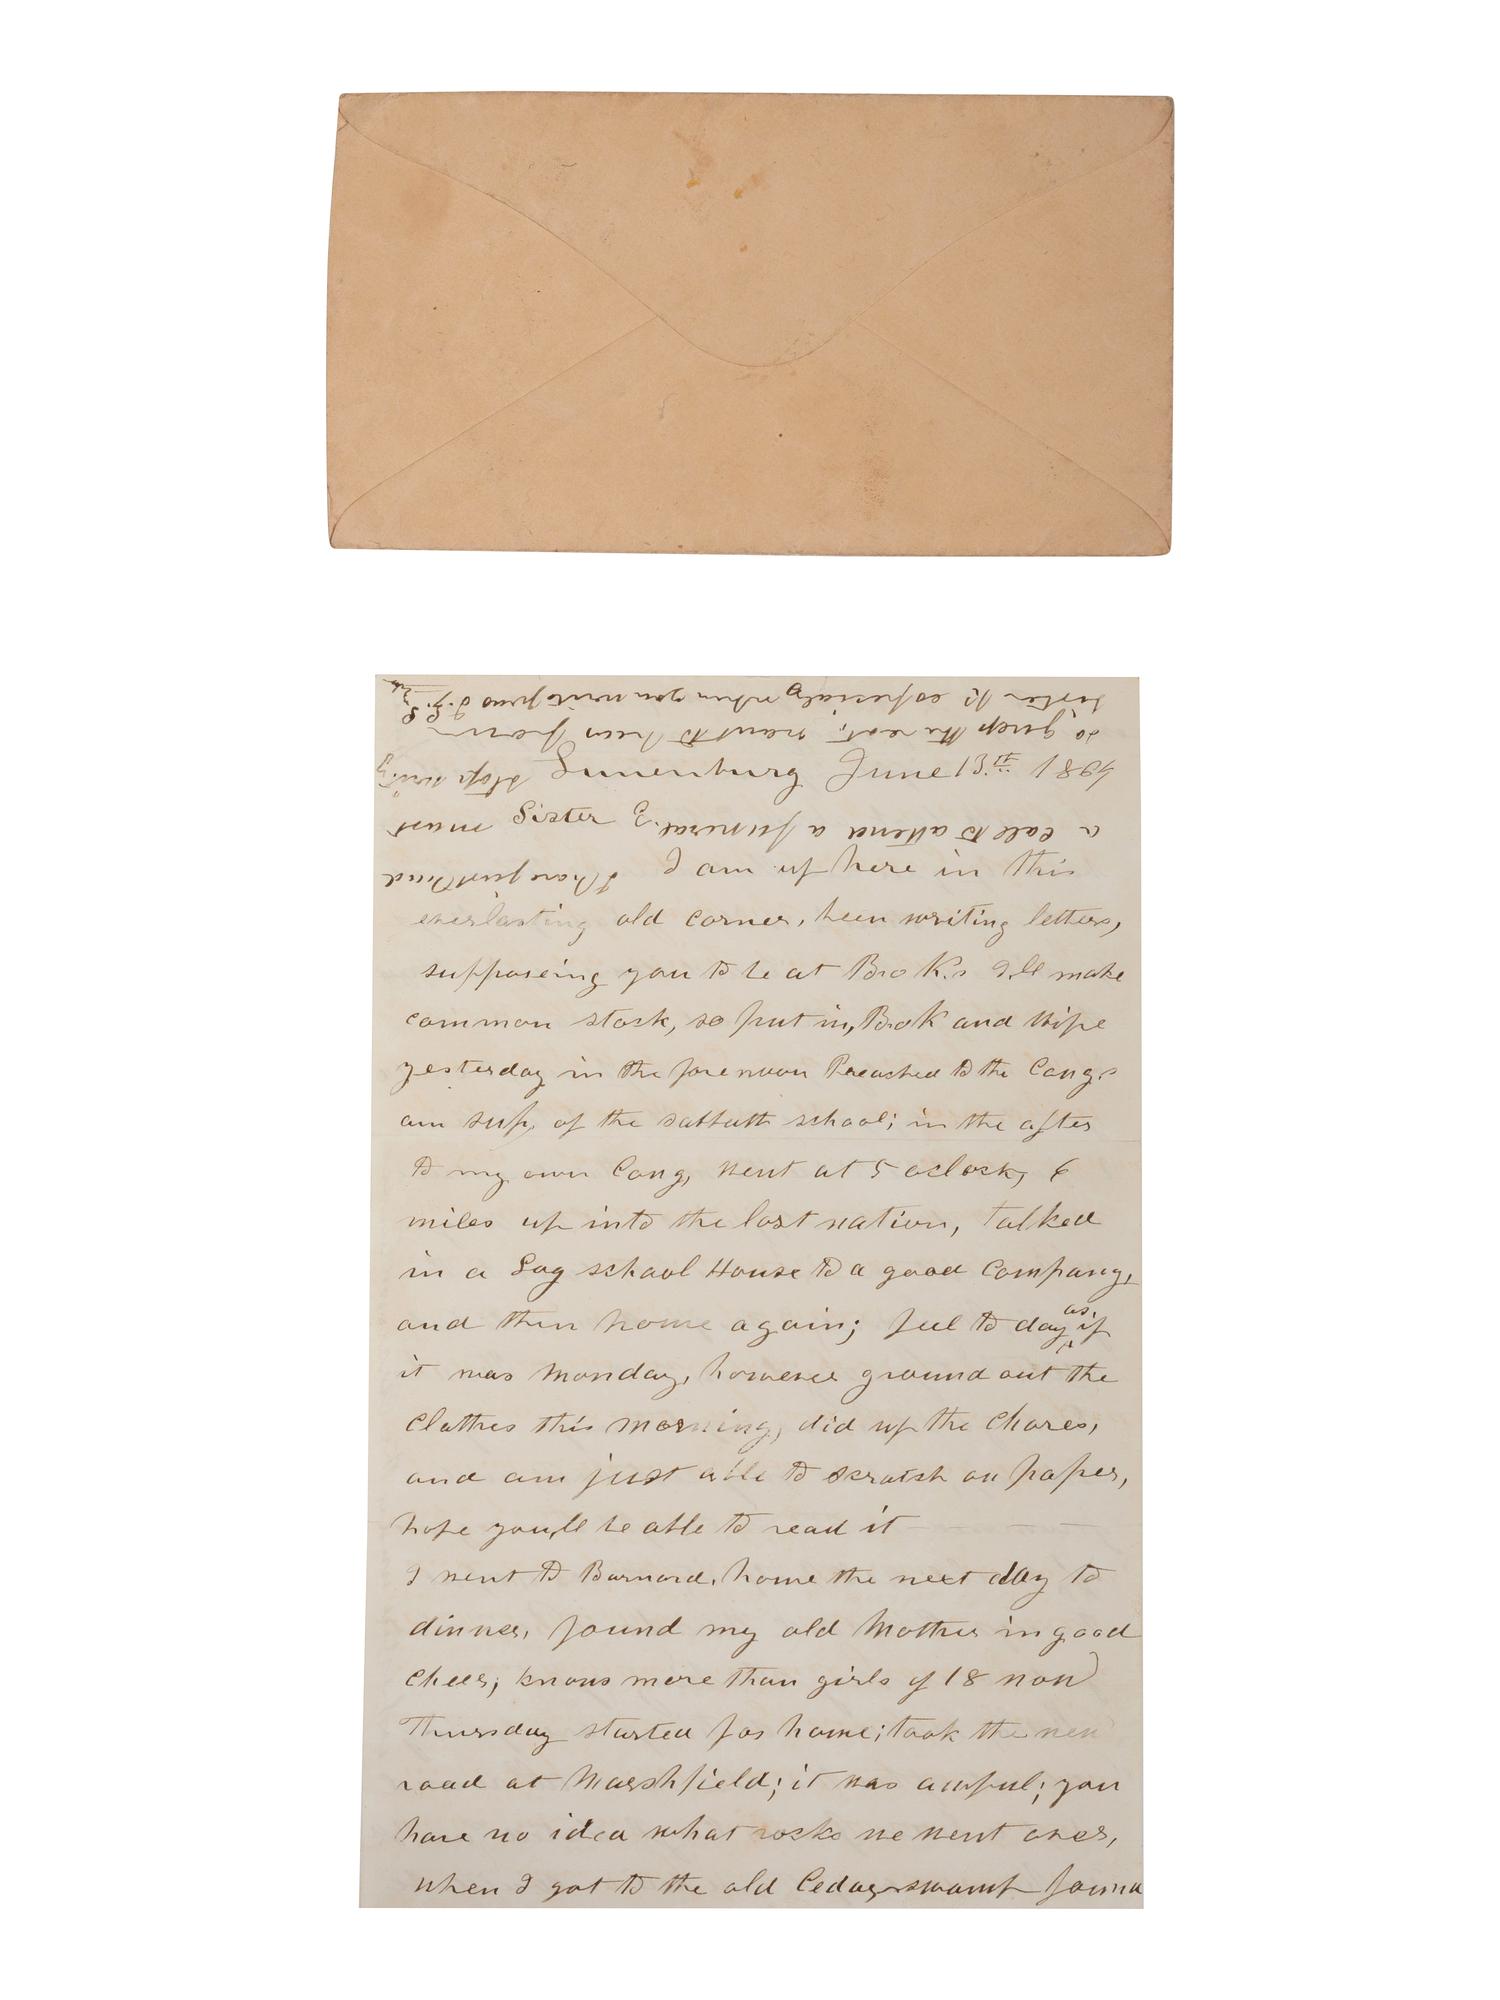 Lunenburg June 13th 1864
Sister
I am up here in this
everlasting old corner, been writing letters,
supposeing you to be at Bro K.s I.ll make
common stock, so put in, Bro K and Wife
yesterday in the forenoon Preached to the Cong.
am sup, of the sabbath school; in the after
to my own Cong, went at 5 oclock, 6
miles up into the lost nation, talked
in a Log school House to a good Company,
and then home again; feel to day as if
it was Monday, however ground out the
Clothes this morning, did up the Chores,
and am just able to scratch on paper,
hope you,ll be able to read it
I went to Barnard, home the next day to
dinner, found my old Mother in good
cheer; knows more than girls of 18 now
Thursday started for home; took the new
road at Marshfield; it was awful; you
have no idea what rocks we went over,
when I got to the old Cedar swamp found
I have just had
a call to attend a funeral, must
stop writing
so guess the rest; want to hear from
sister especialy when you write